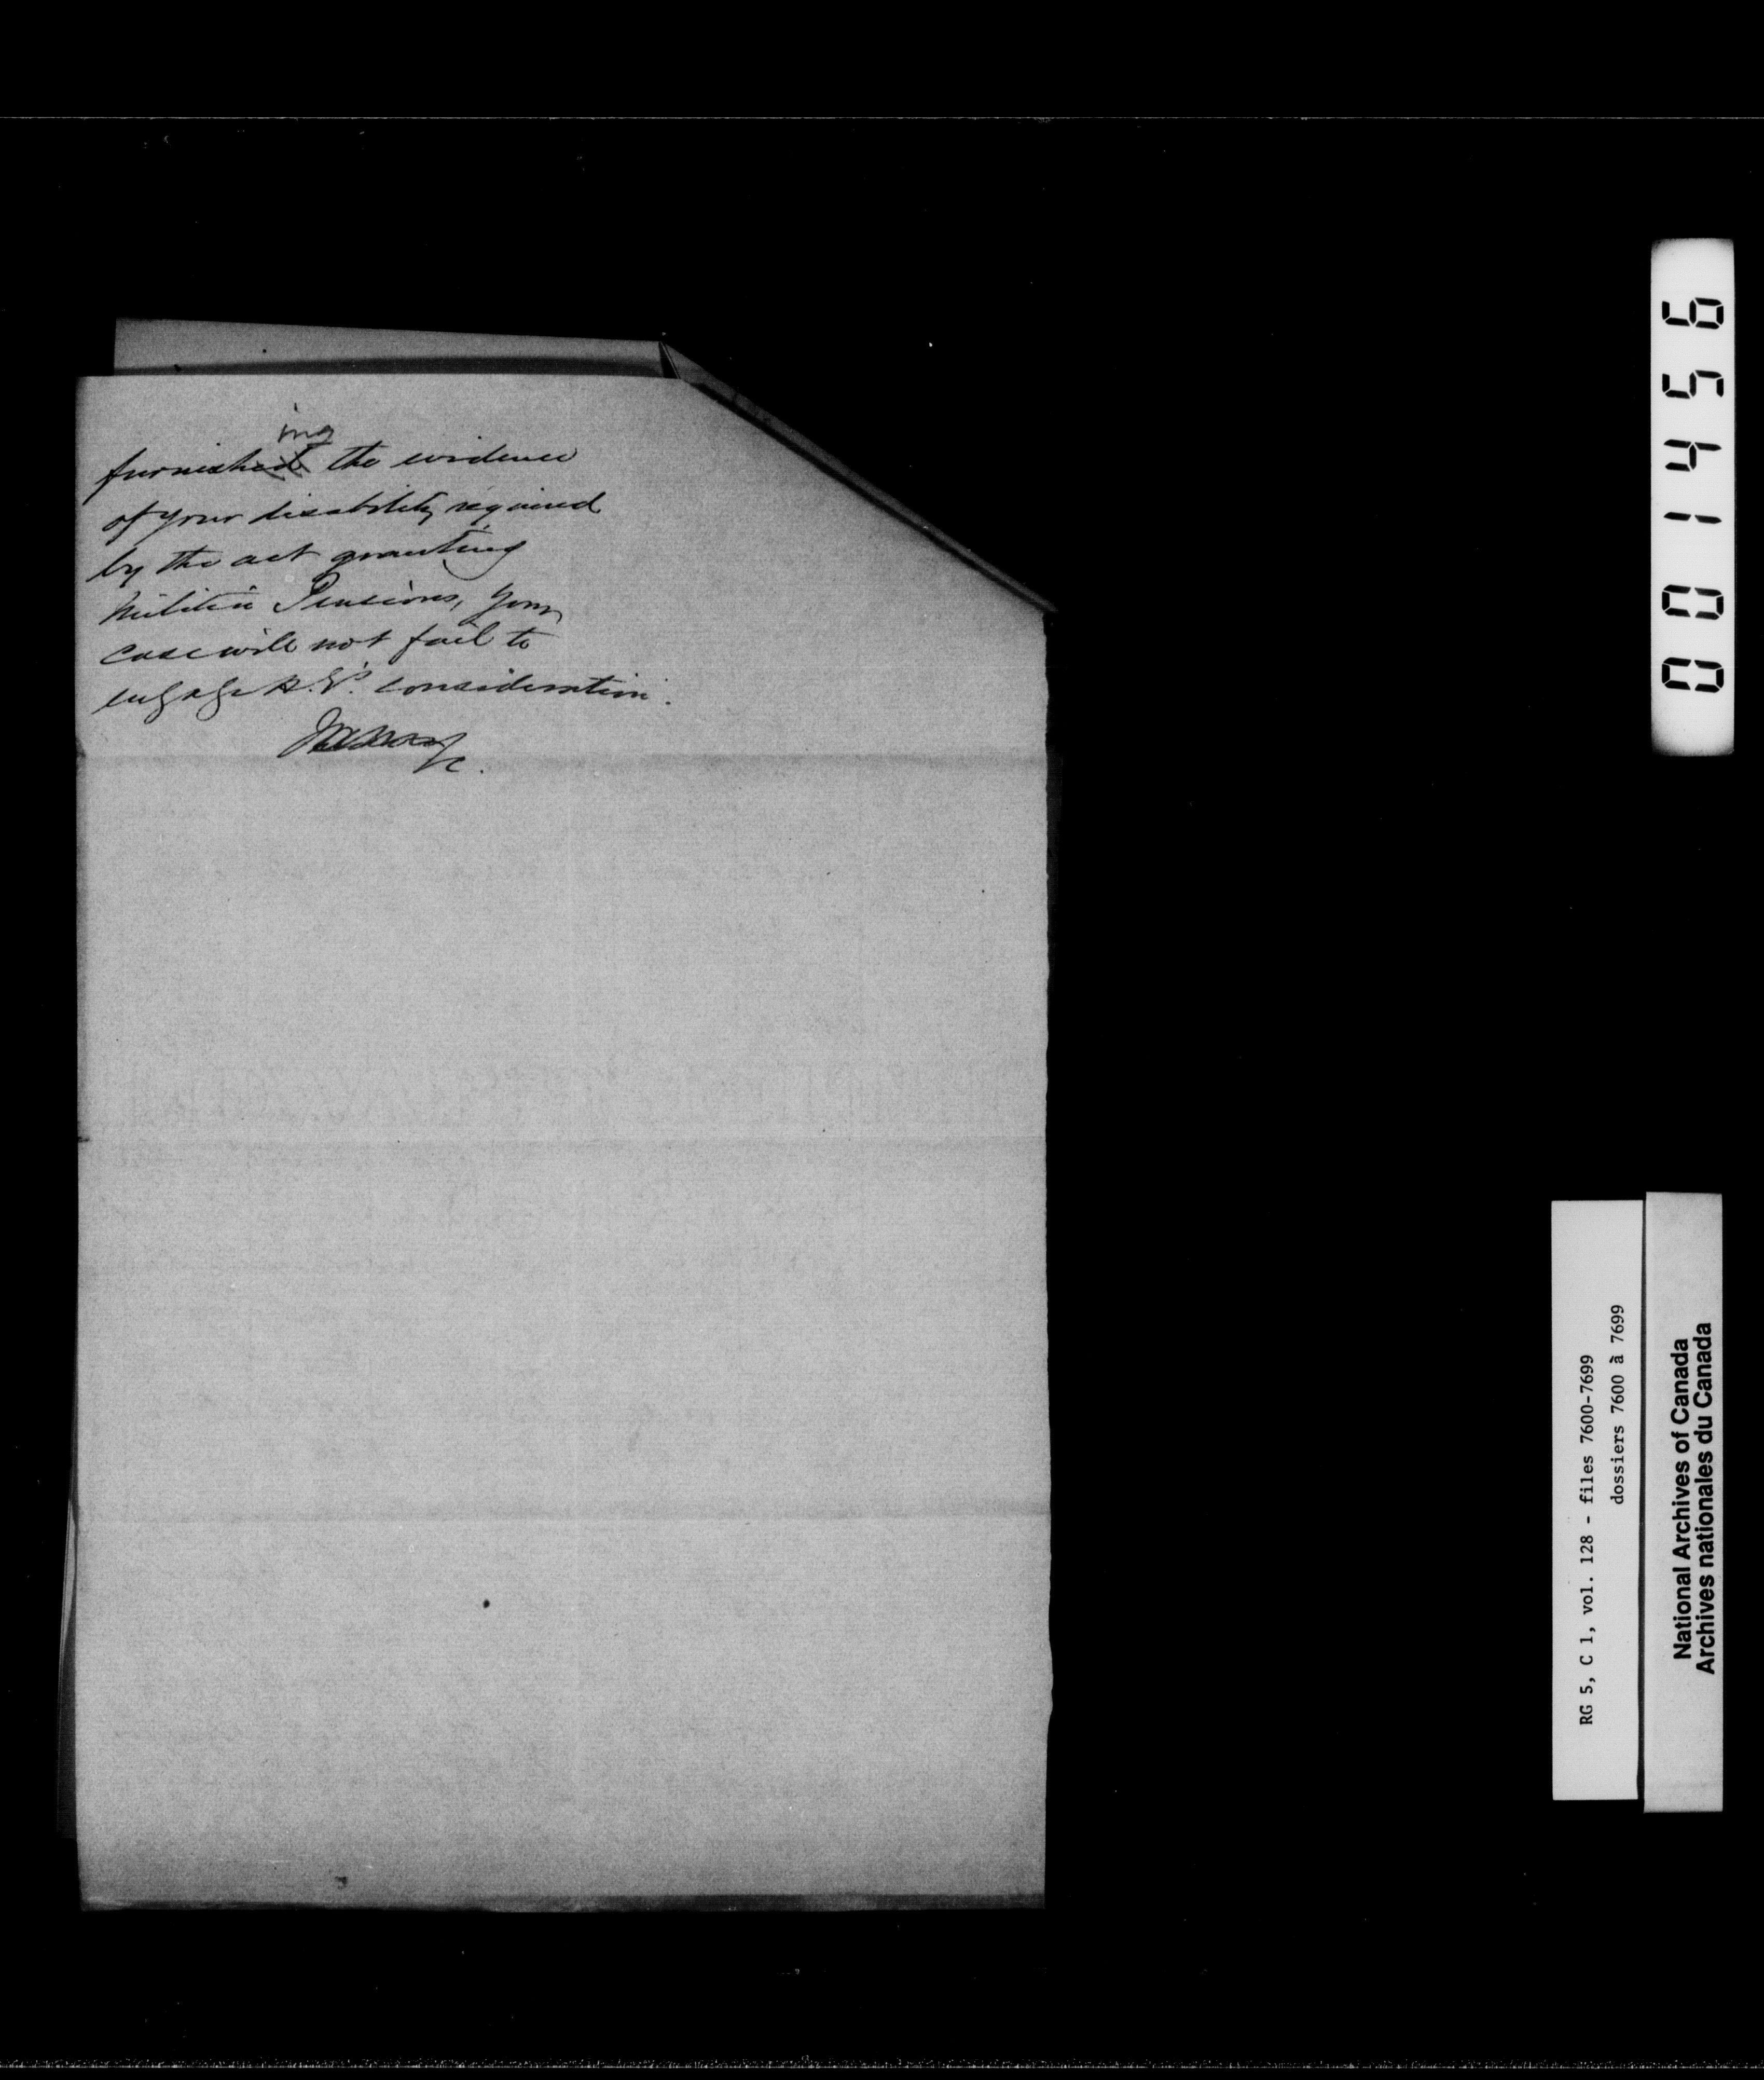 furnished ing the evidence
of your disability required
by the act granting
Militia Pensions, your
case will not fail to
engage H.E's. consideration.
001456
RG 5, C 1, vol. 128 - files 7600-7699
dossiers 7600 à 7699
National Archives of Canada
Archives nationales du Canada